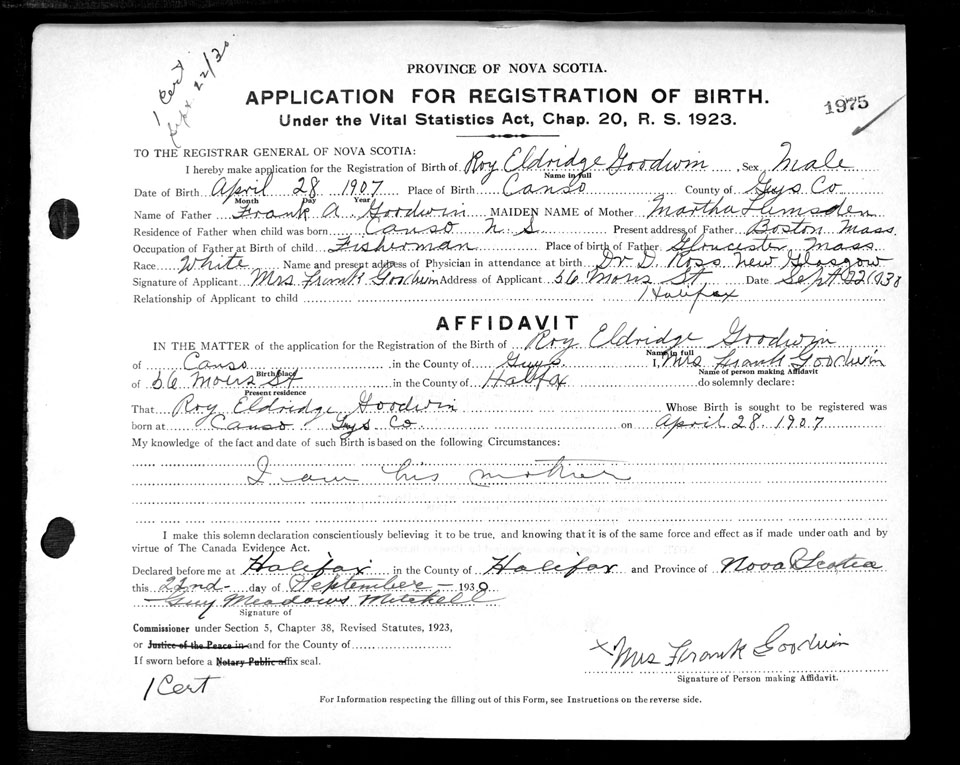 1 Cert
Sept 22/30
PROVINCE OF NOVA SCOTIA.
APPLICATION FOR REGISTRATION OF BIRTH.
1975
Under the Vital Statistics Act, Chap. 20, R. S. 1923.
TO THE REGISTRAR GENERAL OF NOVA SCOTIA:
I hereby make application for the Registration of Birth of Roy Eldridge Goodwin, Sex Male
Name in full
Date of Birth April 28 1907 Place of Birth Canso County of Guys Co
Month Day Year
Name of Father Frank A Goodwin MAIDEN NAME of Mother Martha Lumsden
Residence of Father when child was born Canso N. S. Present address of Father Boston Mass.
Occupation of Father at Birth of child Fisherman Place of birth of Father Gloucester Mass
Race White Name and present address of Physician in attendance at birth Dr D. Ross New Glasgow
Signature of Applicant Mrs Frank Goodwin Address of Applicant 56 Morris St Date Sept 22 1930
Relationship of Applicant to child Halifax
AFFIDAVIT
IN THE MATTER of the application for the Registration of the Birth of Roy Eldridge Goodwin
Name in full
of Canso in the County of Guys I, Mrs Frank Goodwin
Birthplace Name of person making Affidavit
of 56 Morris St in the County of Halifax do solemnly declare:
Present residence
That Roy Eldridge Goodwin Whose Birth is sought to be registered was
born at Canso Guys Co on April 28. 1907
My knowledge of the fact and date of such Birth is based on the following Circumstances:
I am his mother
I make this solemn declaration conscientiously believing it to be true, and knowing that it is of the same force and effect as if made under oath and by
virtue of The Canada Evidence Act.
Declared before me at Halifax in the County of Halifax and Province of Nova Scotia
this 22nd day of September 1930
Guy Meadows Mitchell
Signature of
Commissioner under Section 5, Chapter 38, Revised Statutes, 1923,
or Justice of the Peace in and for the County of
If sworn before a Notary Public affix seal.
x Mrs Frank Goodwin
Signature of Person making Affidavit.
1 Cert
For Information respecting the filling out of this Form, see Instructions on the reverse side.